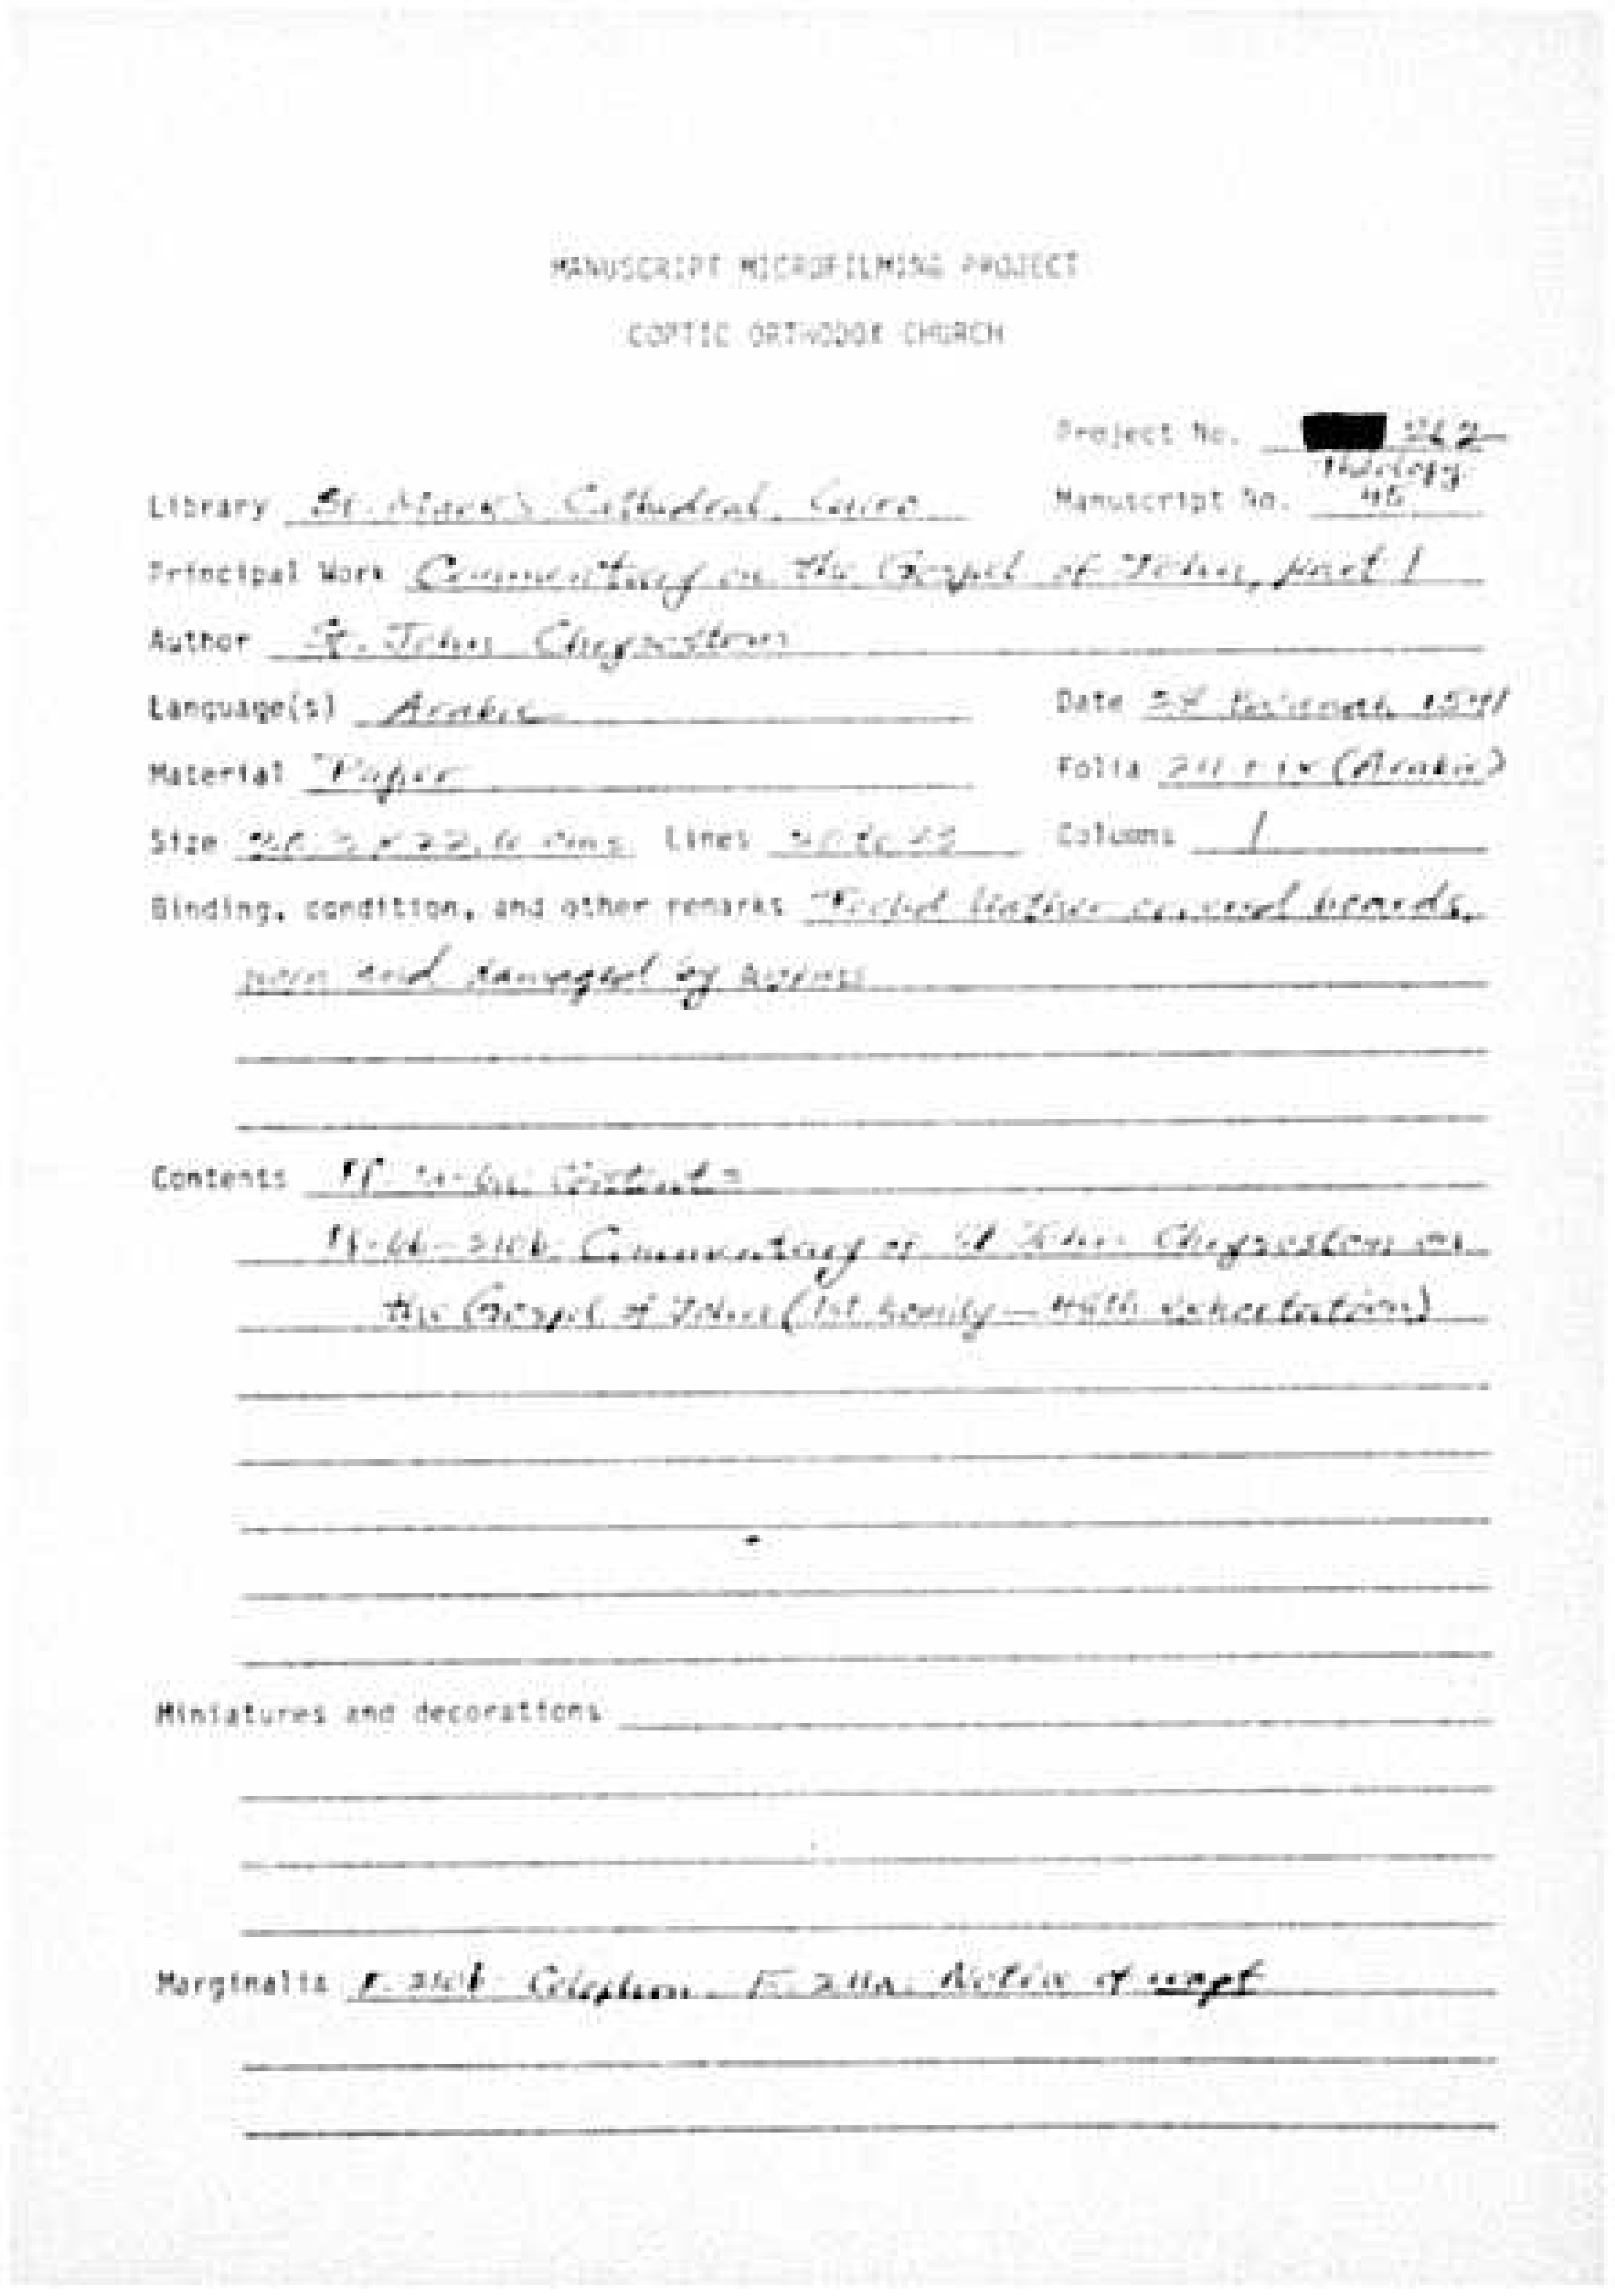 MANUSCRIPT MICROFILMING PROJECT
COPTIC ORTHODOX CHURCH
Project No.
Theology
Library St. Mark's Cathedral, Cairo Manuscript No. 45
Principal Work Commentary on the Gospel of John, part 1
Author St. John Chrysostom
Language(s) Arabic Date 1541
Material Paper Folia (Arabic)
Size cms Lines Columns 1
Binding, condition, and other remarks Tooled leather covered boards,
worn and damaged by worms
Contents Contents
210b. Commentary of St John Chrysostom on
the Gospel of John (1st homily — exhortation)
Miniatures and decorations
Marginalia F. 210b Colophon. F. 211a. Notice of waqf